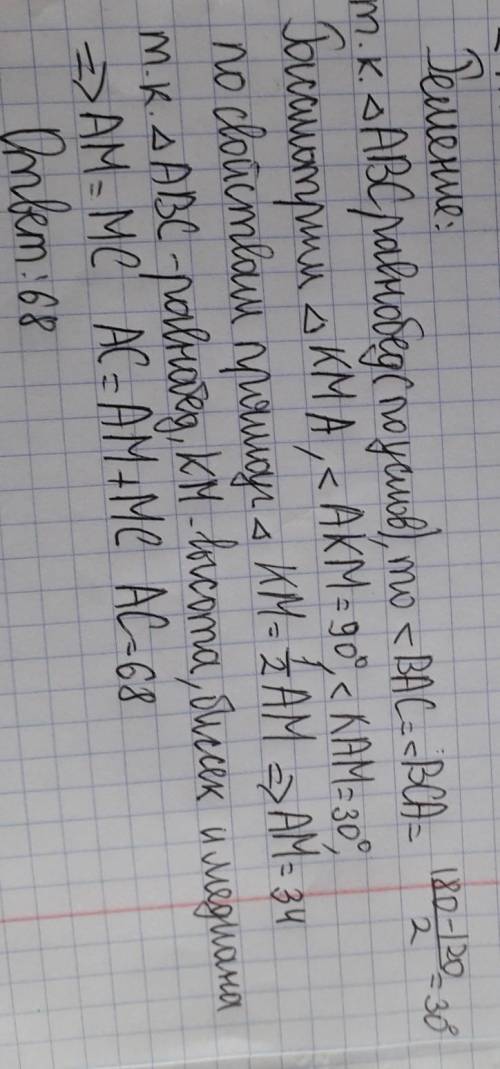 Решение:
т.к. △ ABC равнобед (по услов), то < BAC = < BCA = \frac{180-120}{2} = 30°
Рассмотрим △ KMA, < AKM = 90°, < KAM = 30°,
по свойствам прямоуг △ KM = \frac{1}{2} AM => AM = 34
т.к. △ ABC - равнобед, KM - высота, биссек и медиана
=> AM = MC AC = AM + MC AC = 68
Ответ: 68